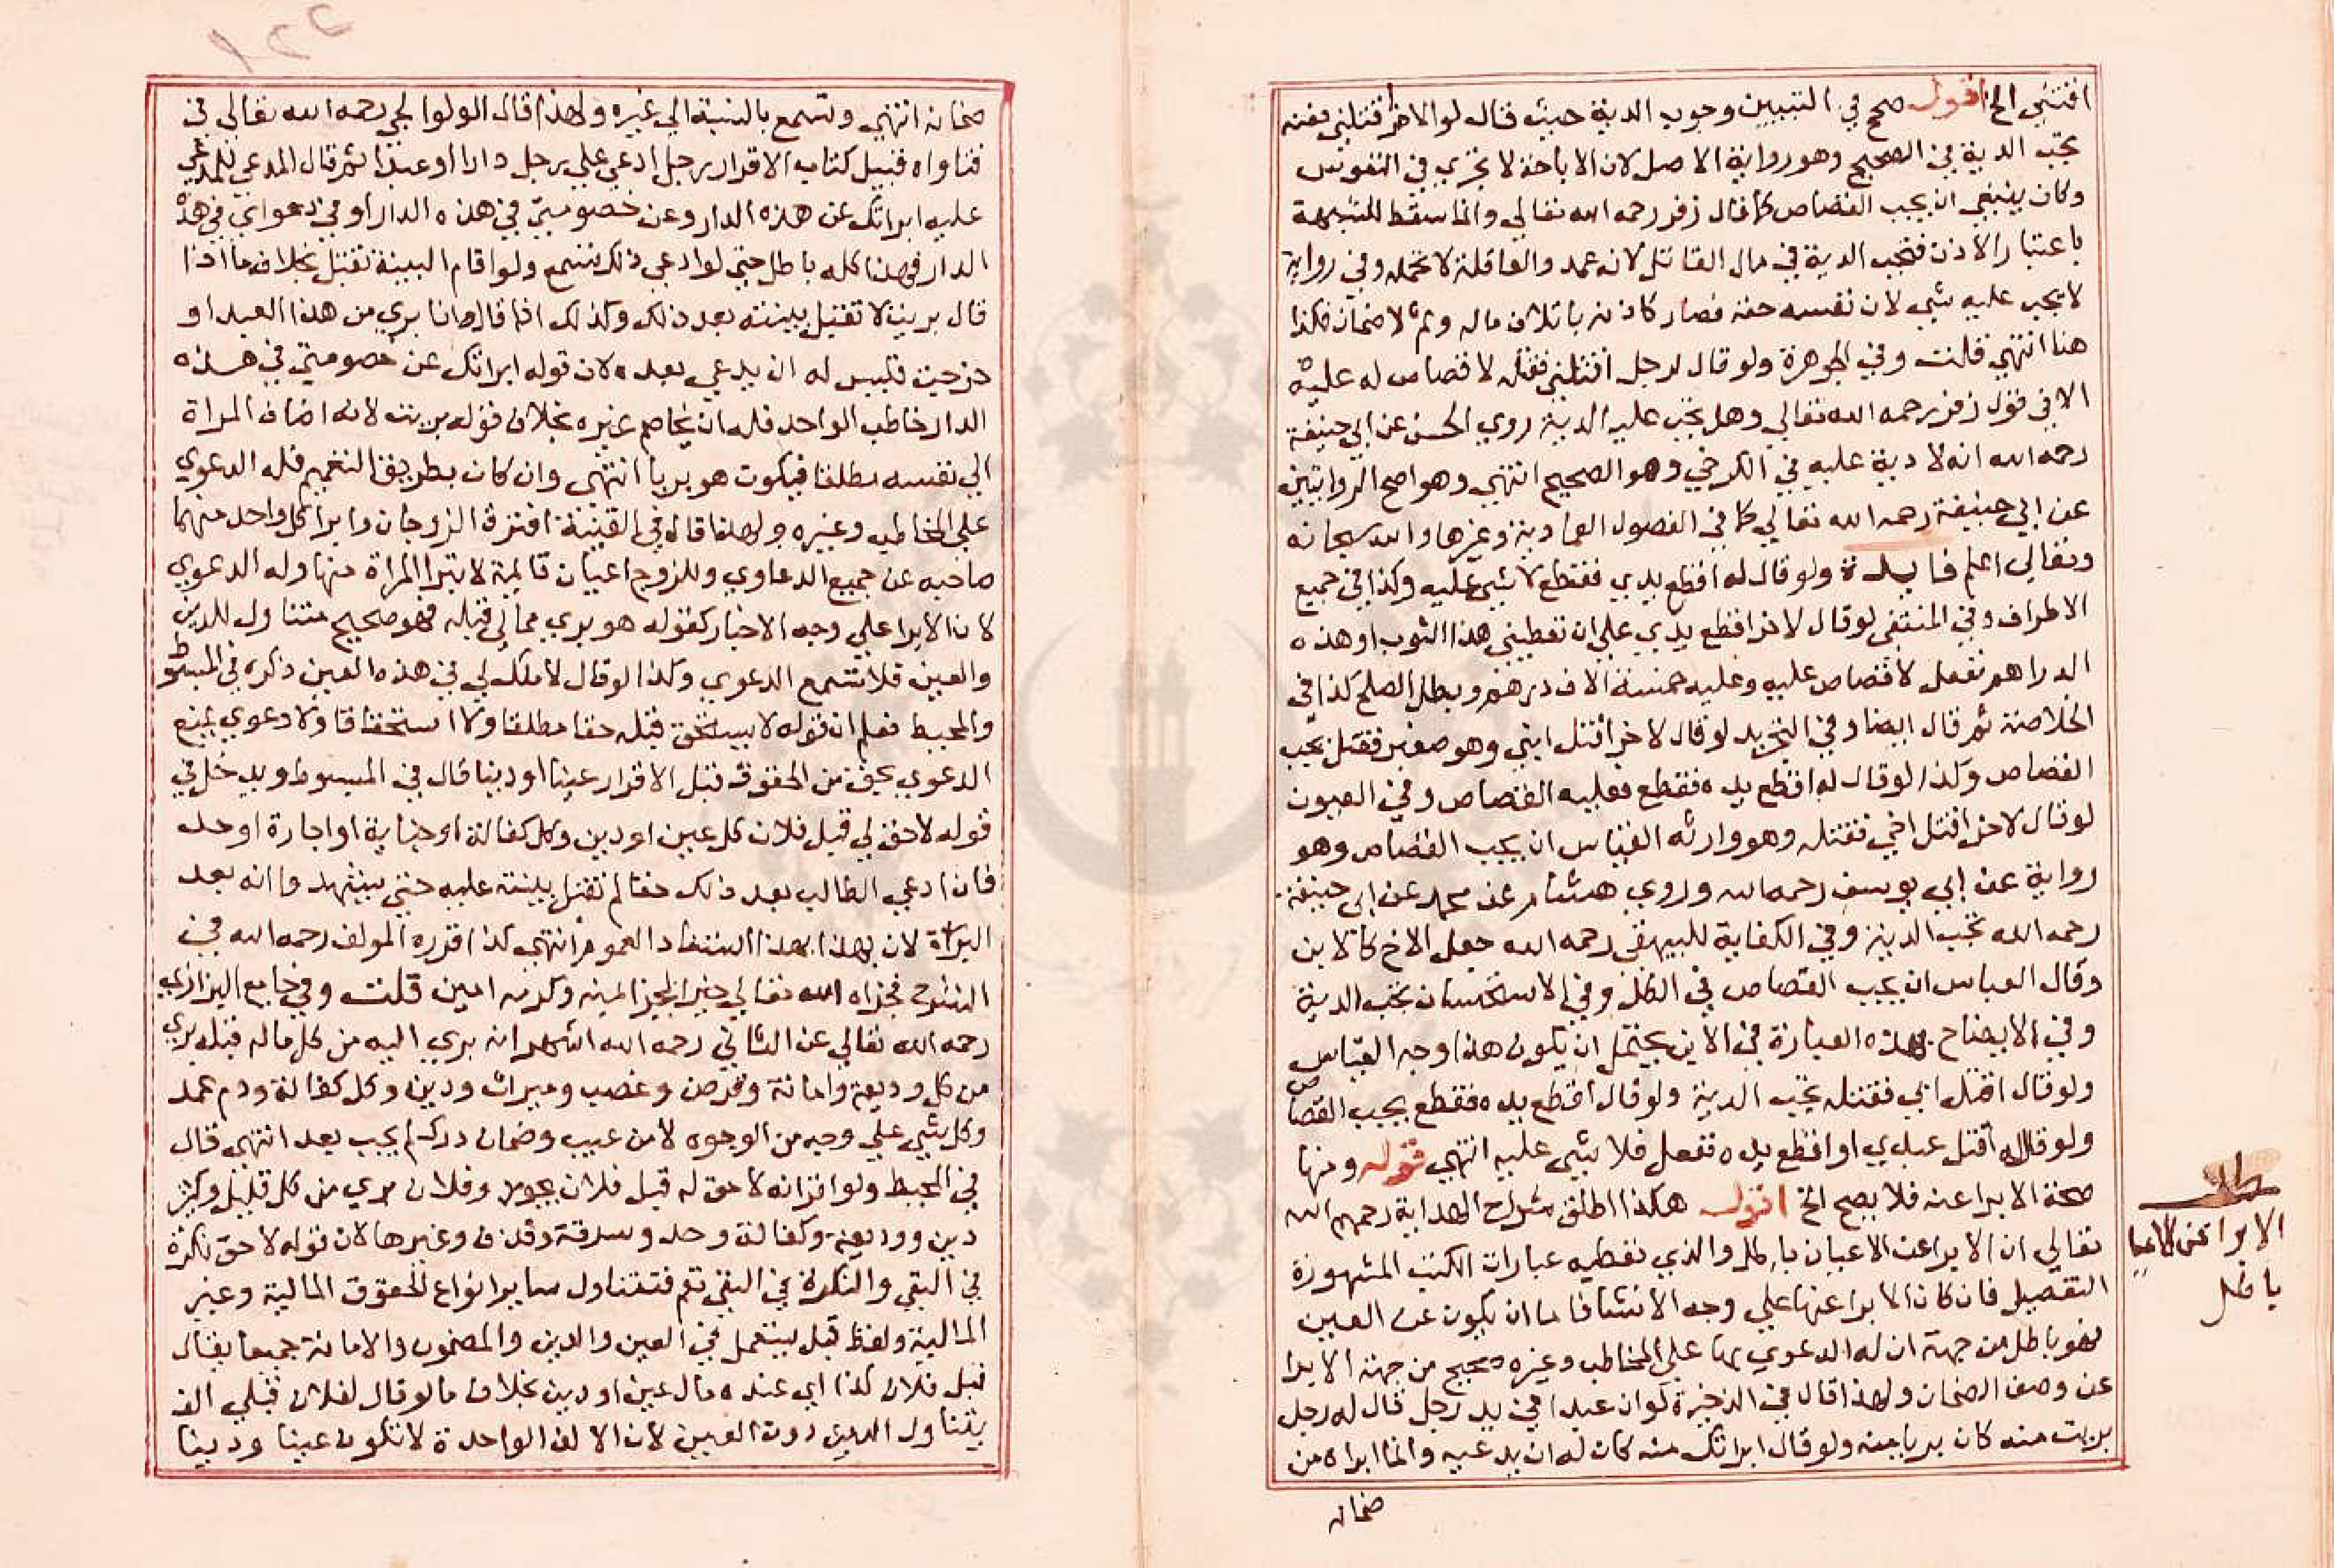 اقتلني الخ اقول صحح في التبيين وجوب الدية حيث قال لو الاخر اقتلني فقتله
تجب الدية في الصحيح وهو رواية الاصل لان الاباحة لا تجري في النفوس
وكان ينبغي ان يجب القصاص كما قال زفر رحمه الله تعالي وانما سقط للشبهة
باعتبار الاذن فتجب الدية في مال القاتل لانه عمد والعاقلة لا تحمله وفي رواية
لا يجب عليه شي لان نفسه حقه فصار كاذنه باتلاف ماله وثم لا ضمان فكذا
هنا انتهي قلت وفي الجوهرة ولو قال لرجل اقتلني فقتله لا قصاص له عليه
الا في قول زفر رحمه الله تعالي وهل تجب عليه الدية روي الحسن عن ابي حنيفة
رحمه الله انه لا دية عليه في الكرخي وهو الصحيح انتهي وهو اصح الروايتين
عن ابي حنيفة رحمه الله تعالي كما في الفصول العمادية وغيرها والله سبحانه
وتعالي اعلم فايدة ولو قال له اقطع يدي فقطع لا شي عليه وكذا في جميع
الاطراف وفي المنتقي لو قال لاخر اقطع يدي علي ان تعطيني هذا الثوب او هذه
الدراهم ففعل لا قصاص عليه وعليه خمسة الاف درهم وبطل الصلح كذا في
الخلاصة ثم قال ايضا وفي التجريد لو قال لاخر اقتل ابني وهو صغير فقتل يجب
القصاص وكذا لو قال له اقطع يده فقطع فعليه القصاص وفي العيون
لو قال لاخر اقتل اخي فقتله وهو وارثه القياس ان يجب القصاص وهو
رواية عن ابي يوسف رحمه الله وروي هشام عن محمد عن ابي حنيفة
رحمه الله تجب الدية وفي الكفاية للبيهقي رحمه الله جعل الاخ كالابن
وقال القياس ان يجب القصاص في الكل وفي الاستحسان تجب الدية
وفي الايضاح بهذه العبارة في الابن يحتمل ان يكون هذا وجه القياس
ولو قال اقتل ابي فقتله تجب الدية ولو قال اقطع يده فقطع يجب القصاص
ولو قال له اقتل عبدي او اقطع يده ففعل فلا شي عليه انتهي قوله ومنها
صحة الابرا عنه فلا يصح الخ اقول هكذا اطلق شراح الهداية رحمهم الله
تعالي ان الابرا عن الاعيان باطل والذي تعطيه عبارات الكتب المشهورة
التفصيل فان كان الابرا عنها علي وجه الانشا فاما ان يكون عن العين
فهو باطل من جهة ان له الدعوي بها علي المخاطب وغيره صحيح من جهة الابرا
عن وصف الضمان ولهذا قال في الذخيرة لو ان عبدا في يد رجل قال له رجل
بريت منه كان بريا منه ولو قال ابراتك منه كان له ان يدعيه وانما ابراه من
ضمانه
مطلب
الابرا عن الاعيان
باطل
ضمانه انتهي وتسمع بالنسبة الي غيره ولهذا قال الولوالجي رحمه الله تعالي في
فتاواه قبيل كتاب الاقرار رجل ادعي علي رجل دارا او عبدا ثم قال المدعي للمدعي
عليه ابراتك عن هذه الدار وعن خصومتي في هذه الدار او في دعواي في هذه
الدار فهذا كله باطل حتي لو ادعي ذلك تسمع ولو اقام البينة تقبل بخلاف ما اذا
قال بريت لا تقبل بينته بعد ذلك وكذلك اذا قال وانا بري من هذا العبد او
خرجت فليس له ان يدعي بعده لان قوله ابراتك عن خصومتي في هذه
الدار خاطب الواحد فله ان يخاصم غيره بخلاف قوله بريت لانه اضاف البراة
الي نفسه مطلقا فيكون هو بريا انتهي وان كان بطريق التعميم فله الدعوي
علي المخاطب وغيره ولهذا قال في القنية افترق الزوجان وابرا كل واحد منهما
صاحبه عن جميع الدعاوي وللزوج اعيان قايمة لا تبرا المراة منها وله الدعوي
لان الابرا علي وجه الاخبار كقوله هو بري مما لي قبله فهو صحيح متناول للدين
والعين فلا تسمع الدعوي وكذا لو قال لا ملك لي في هذه العين ذكره في المبسوط
والمحيط فعلم ان قوله لا يستحق قبله حقا مطلقا ولا استحقاقا ولا دعوي يمنع
الدعوي بحق من الحقوق قبل الاقرار عينا او دينا قال في المبسوط ويدخل في
قوله لا حق لي قبل فلان كل عين او دين وكل كفالة او جناية او اجارة او حد
فان ادعي الطالب بعد ذلك حقا لم تقبل بينته عليه حتي يشهدوا انه بعد
البراة لان بهذا بهذا استفاد العموم انتهي كذا قرره المولف رحمه الله في
الشرح فجزاه الله تعالي خير الجزا لمنه وكرمه امين قلت وفي جامع البزازي
رحمه الله تعالي عن الثاني رحمه الله اشهد انه بري اليه من كل ماله قبله بري
من كل وديعة وامانة وقرض وغصب وميراث ودين وكل كفالة ودم عمد
وكل شي علي وجه من الوجوه لا من عيب وضمان درك لم يجب بعد انتهي قال
في المحيط ولو اقر انه لا حق له قبل فلان يجوز وفلان بري من كل قليل وكثير
دين ووديعة وكفالة وحد وسرقة وقذف وغيرها لان قوله لا حق نكرة
في النفي والنكرة في النفي تعم فتتناول ساير انواع الحقوق المالية وغير
المالية ولفظ قبل يستعمل في العين والدين والمضمون والامانة جميعا يقال
قبل فلان كذا اي عنده مال عين او دين بخلاف ما لو قال لفلان قبلي الف
يتناول الدين دون العين لان الالف الواحدة لا تكون عينا ودينا